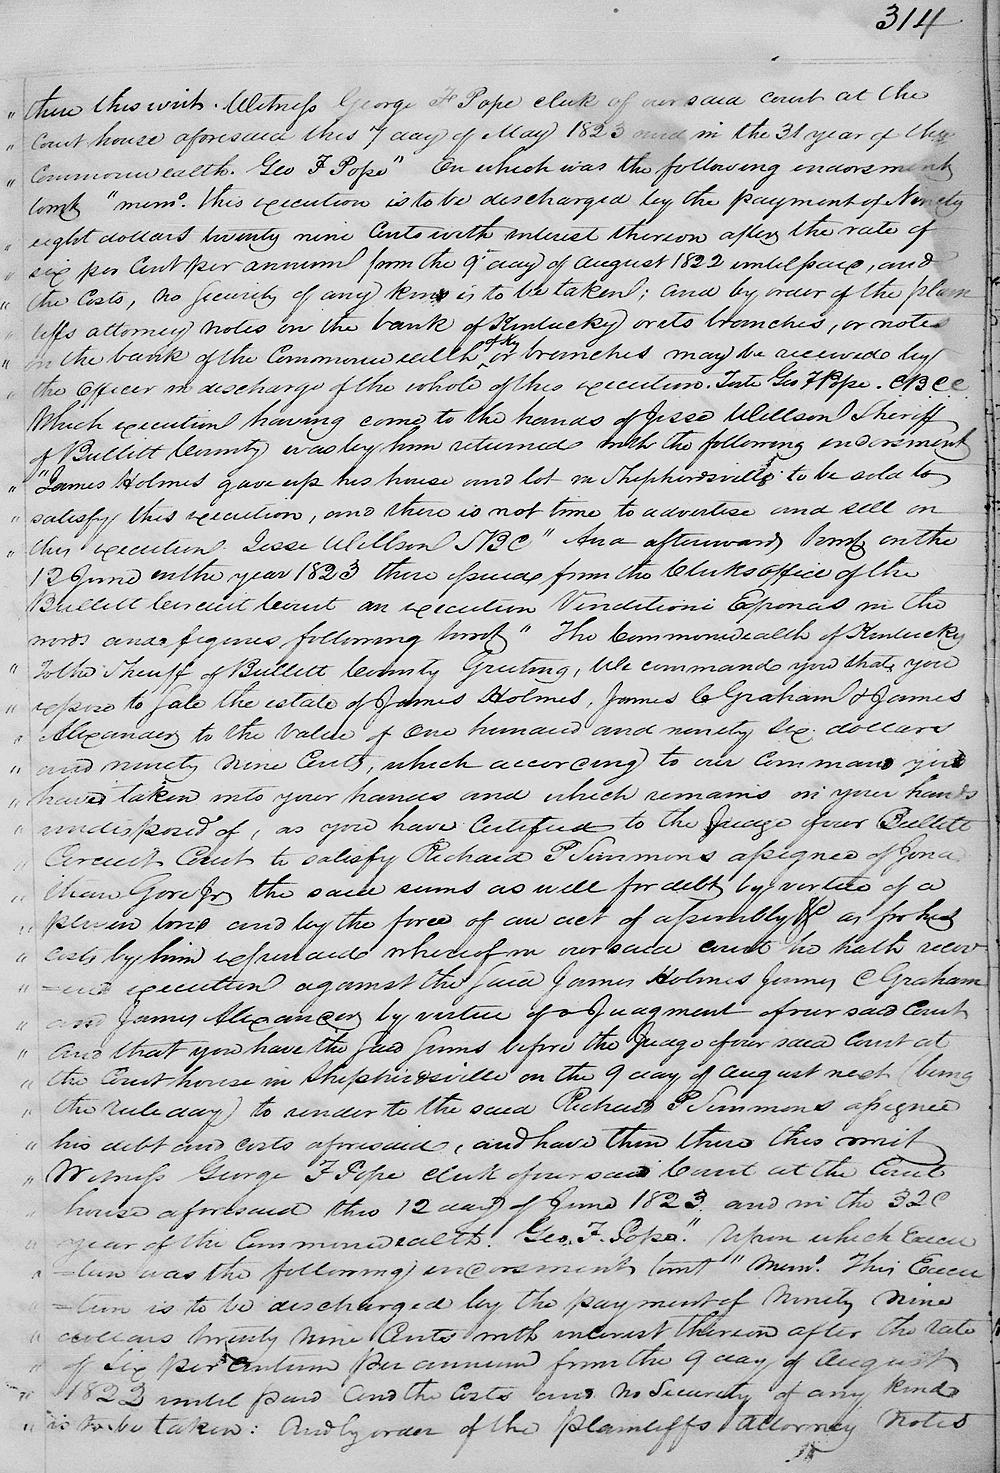 314
" there this writ. Witness George F Pope clerk of our said court at the
" Court house aforesaid this 7 day of May 1823 and in the 31 year of the
" Commonwealth. Geo F Pope" On which was the following endorsment
towit "mem.o this execution is to be discharged by the payment of Ninety
" eight dollars twenty nine Cents with interest thereon after the rate of
" six per Cent per annum from the 9 day of August 1822 until paid, and
" the Costs, no security of any kind is to be taken; and by order of the plain
" tiffs attorney notes on the bank of Kentucky or its branches, or notes
" on the bank of the Commonwealth of Ky or branches may be received by
" the Officer in discharge of the whole of this execution. Teste Geo F Pope. C.B.C.C.
Which execution having come to the hands of Jesse Willson Sheriff
of Bullitt County was by him returned with the following endorsment
" "James Holmes gave up his house and lot in Shepherdsville to be sold to
" satisfy this execution, and there is not time to advertise and sell on
" this execution. Jesse Willson SBC" And afterwards towit on the
12 June in the year 1823 there issued from the Clerks office of the
Bullitt Circuit Court an execution Venditioni Exponas in the
words and figures following towit "The Commonwealth of Kentucky
" To the Sheriff of Bullitt County Greeting, We command you that you
" expose to Sale the estate of James Holmes, James C Graham & James
" Alexander to the value of One hundred and ninety six dollars
" and ninety nine Cents, which according to our Command you
" have taken into your hands and which remains in your hands
" undisposed of, as you have Certified to the Judge of our Bullitt
" Circuit Court to satisfy Richard P Simmons assignee of Jona
" than Gore Jr the said sums as well for debt by virtue of a
" plevin bond and by the force of an act of assembly &C as for his
" costs by him expended whereof in our said court he hath recov
" =ered execution against the said James Holmes James C Graham
" and James Alexander by virtue of a Judgment of our said Court
" And that you have the said sums before the Judge of our said Court at
" the Court house in Shepherdsville on the 9 day of August next (being
" the rule day) to render to the said Richard P Simmons assignee
" his debt and costs aforesaid, and have then there this writ
" Witness George F Pope clerk of our said Court at the Court
" house aforesaid this 12 day of June 1823. and in the 32d
" year of the Commonwealth. Geo. F. Pope." Upon which Execu
" =tion was the following endorsment towit "Mem.o This Execu
" =tion is to be discharged by the payment of Ninety nine
" dollars twenty nine Cents with interest thereon after the rate
" of Six per Centum per annum from the 9 day of August
" 1822 until paid and the Costs and no Security of any kind
" is to be taken: And by order of the plaintiffs Attorney Notes